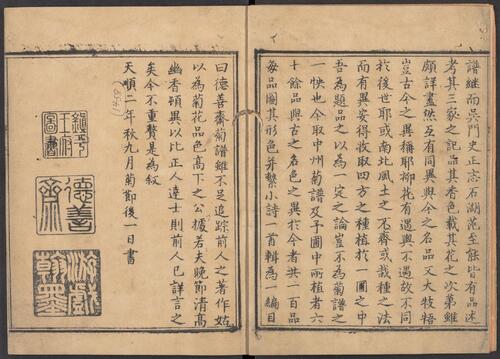 譜繼而吳門史正志石湖范至能皆有品述
考其三家之記品其香色載其花之次第雖
頗詳盡然互有同異與今之名品又大牴牾
豈古今之異稱耶抑花有遇與不遇故不同
於後世耶或南北風土之不齊或栽種之法
而有異安得收取四方之種植於一圃之中
吾為題品之以為一定之論豈不為菊譜之
一快也今取中州菊譜及予圃中所植者六
十餘品與古之名色之異於今者共一百品
每品圖其形色并繫小詩一首輯為一編目
曰德善齋菊譜雖不足追踪前人之著作姑
以為菊花品色高下之公據若夫晚節清高
幽香頓異以比正人達士則前人已詳言之
矣今不重贅是為叙
天順二年秋九月菊節後一日書
(1458)
鎮平王府圖書
德善齋
游戲翰墨